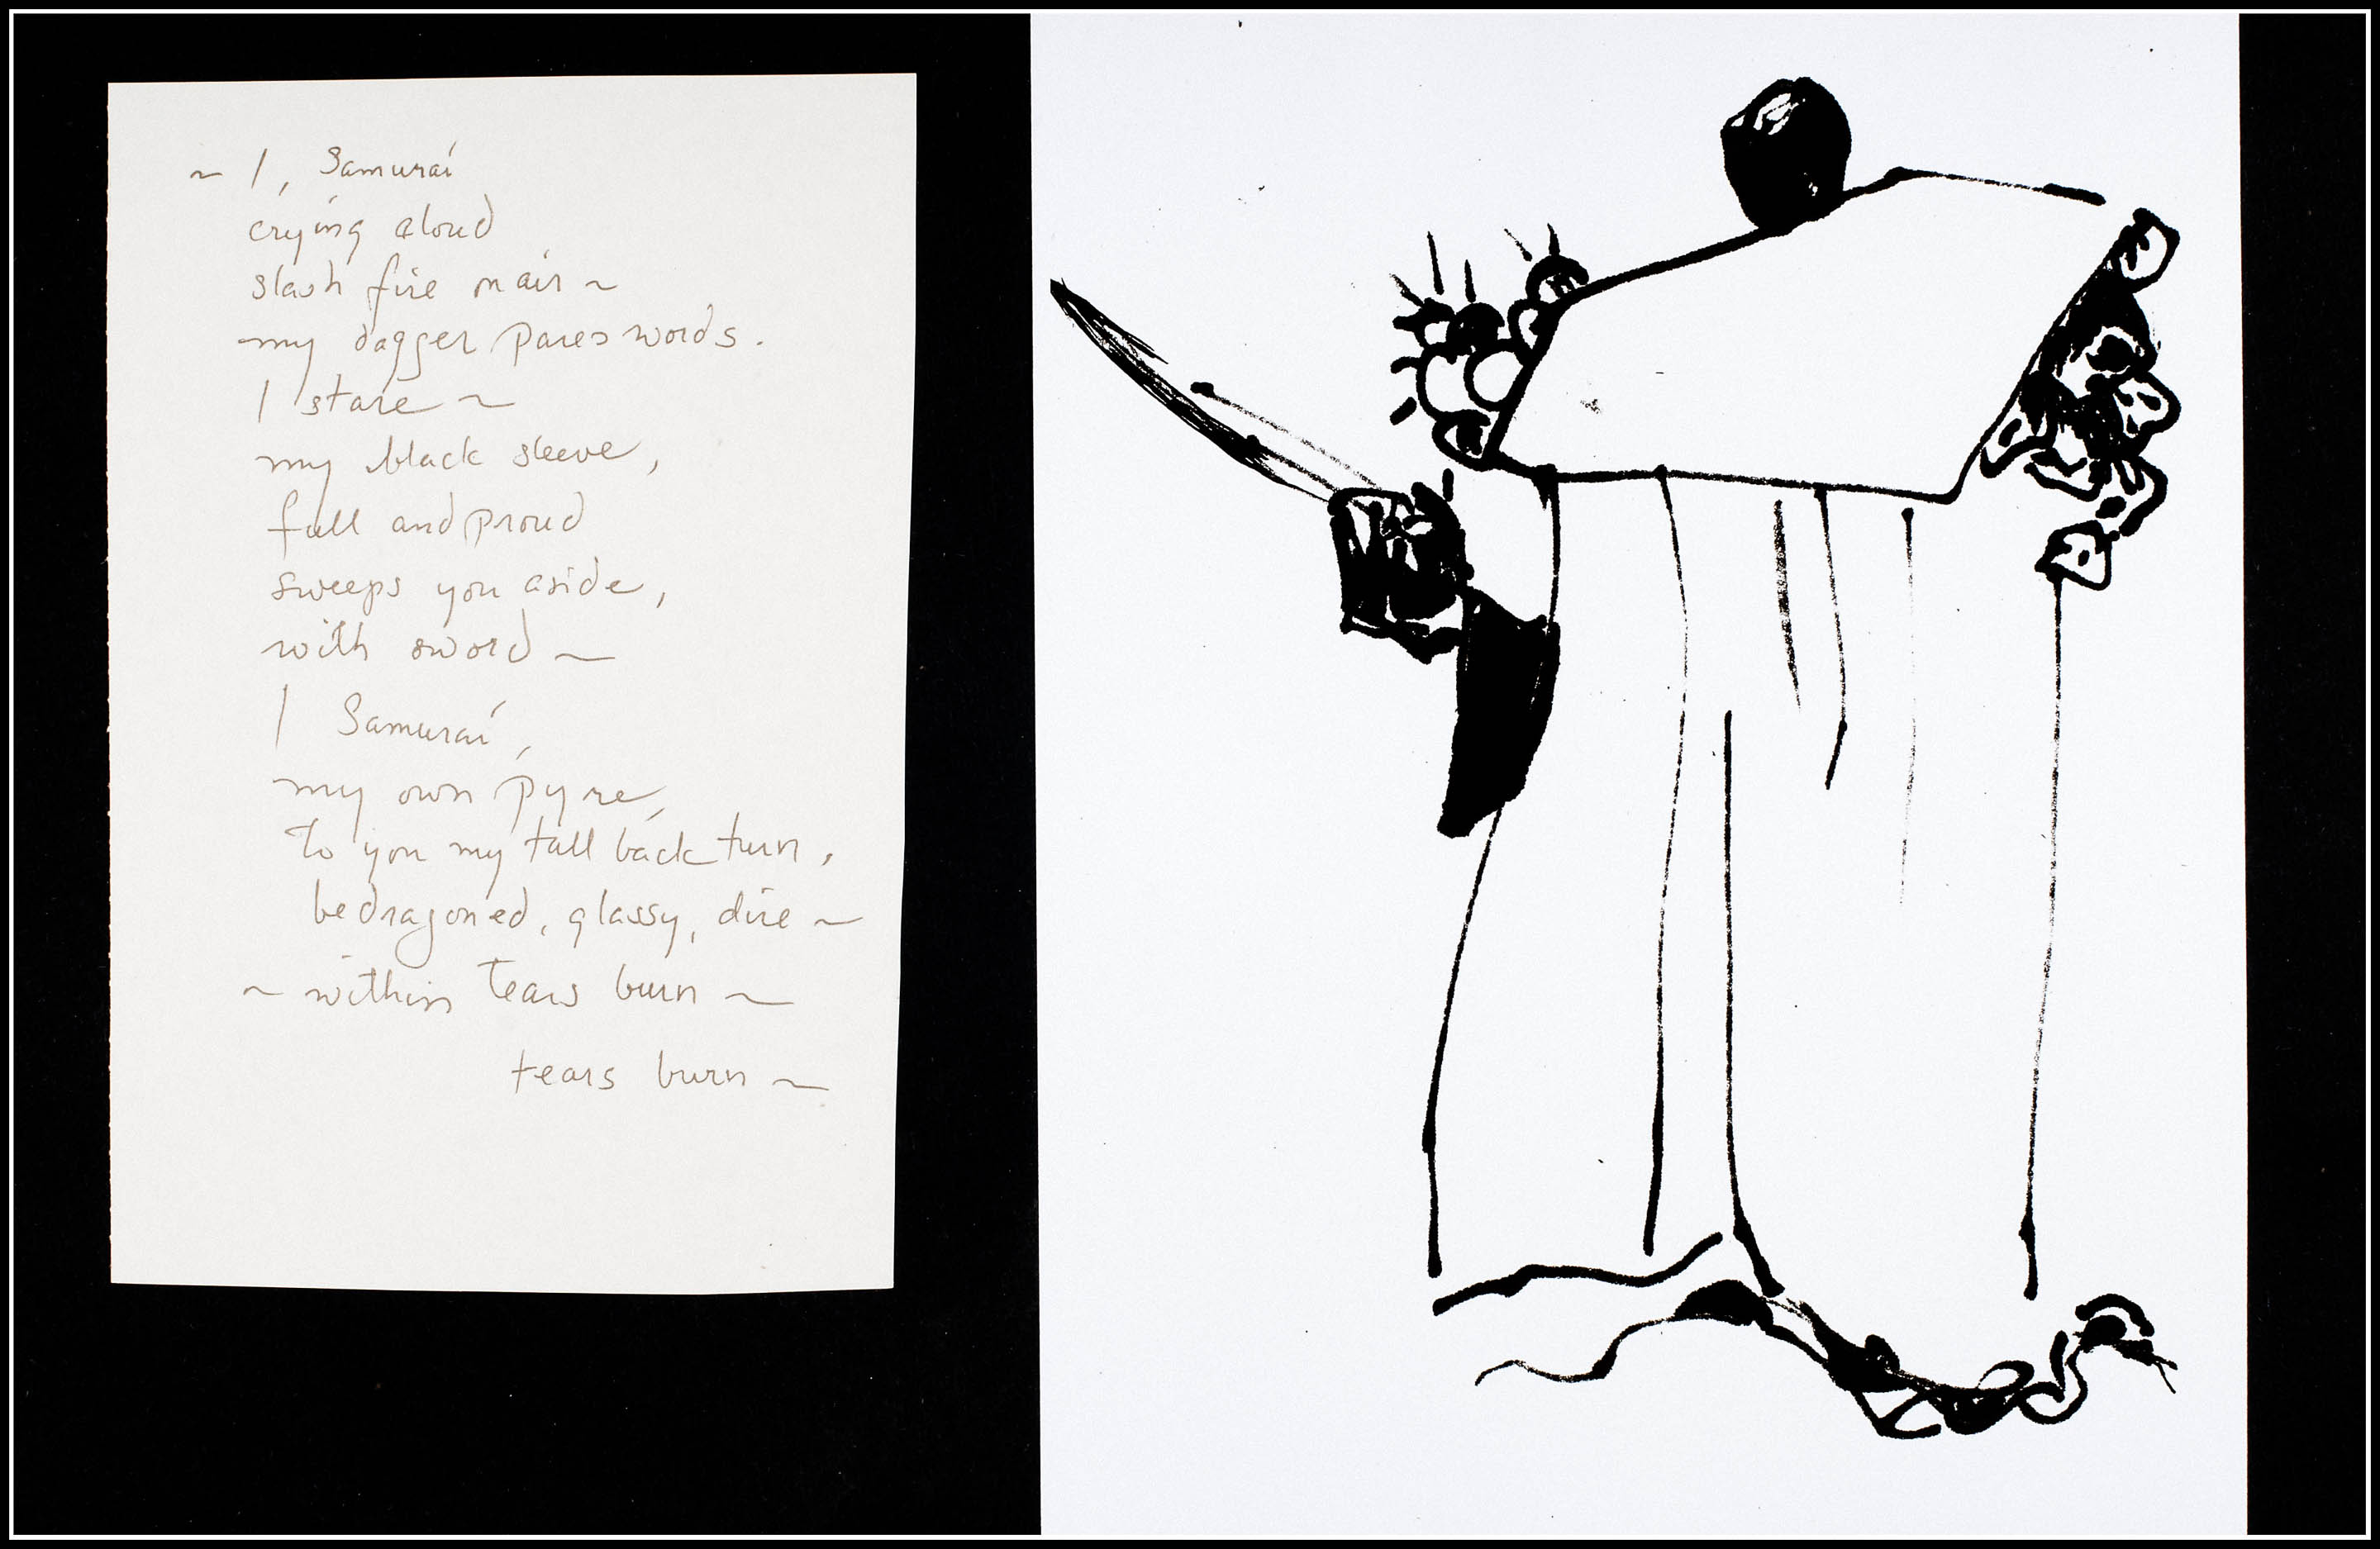 ~ I, Samurai
crying aloud
slash fire in air ~
my dagger pares words.
I stare ~
my black sleeve,
full and proud
sweeps you aside,
with sword ~
I Samurai,
my own pyre,
To you my tall back turn,
bedragoned, glassy, dire ~
~ within Tears burn ~
tears burn ~